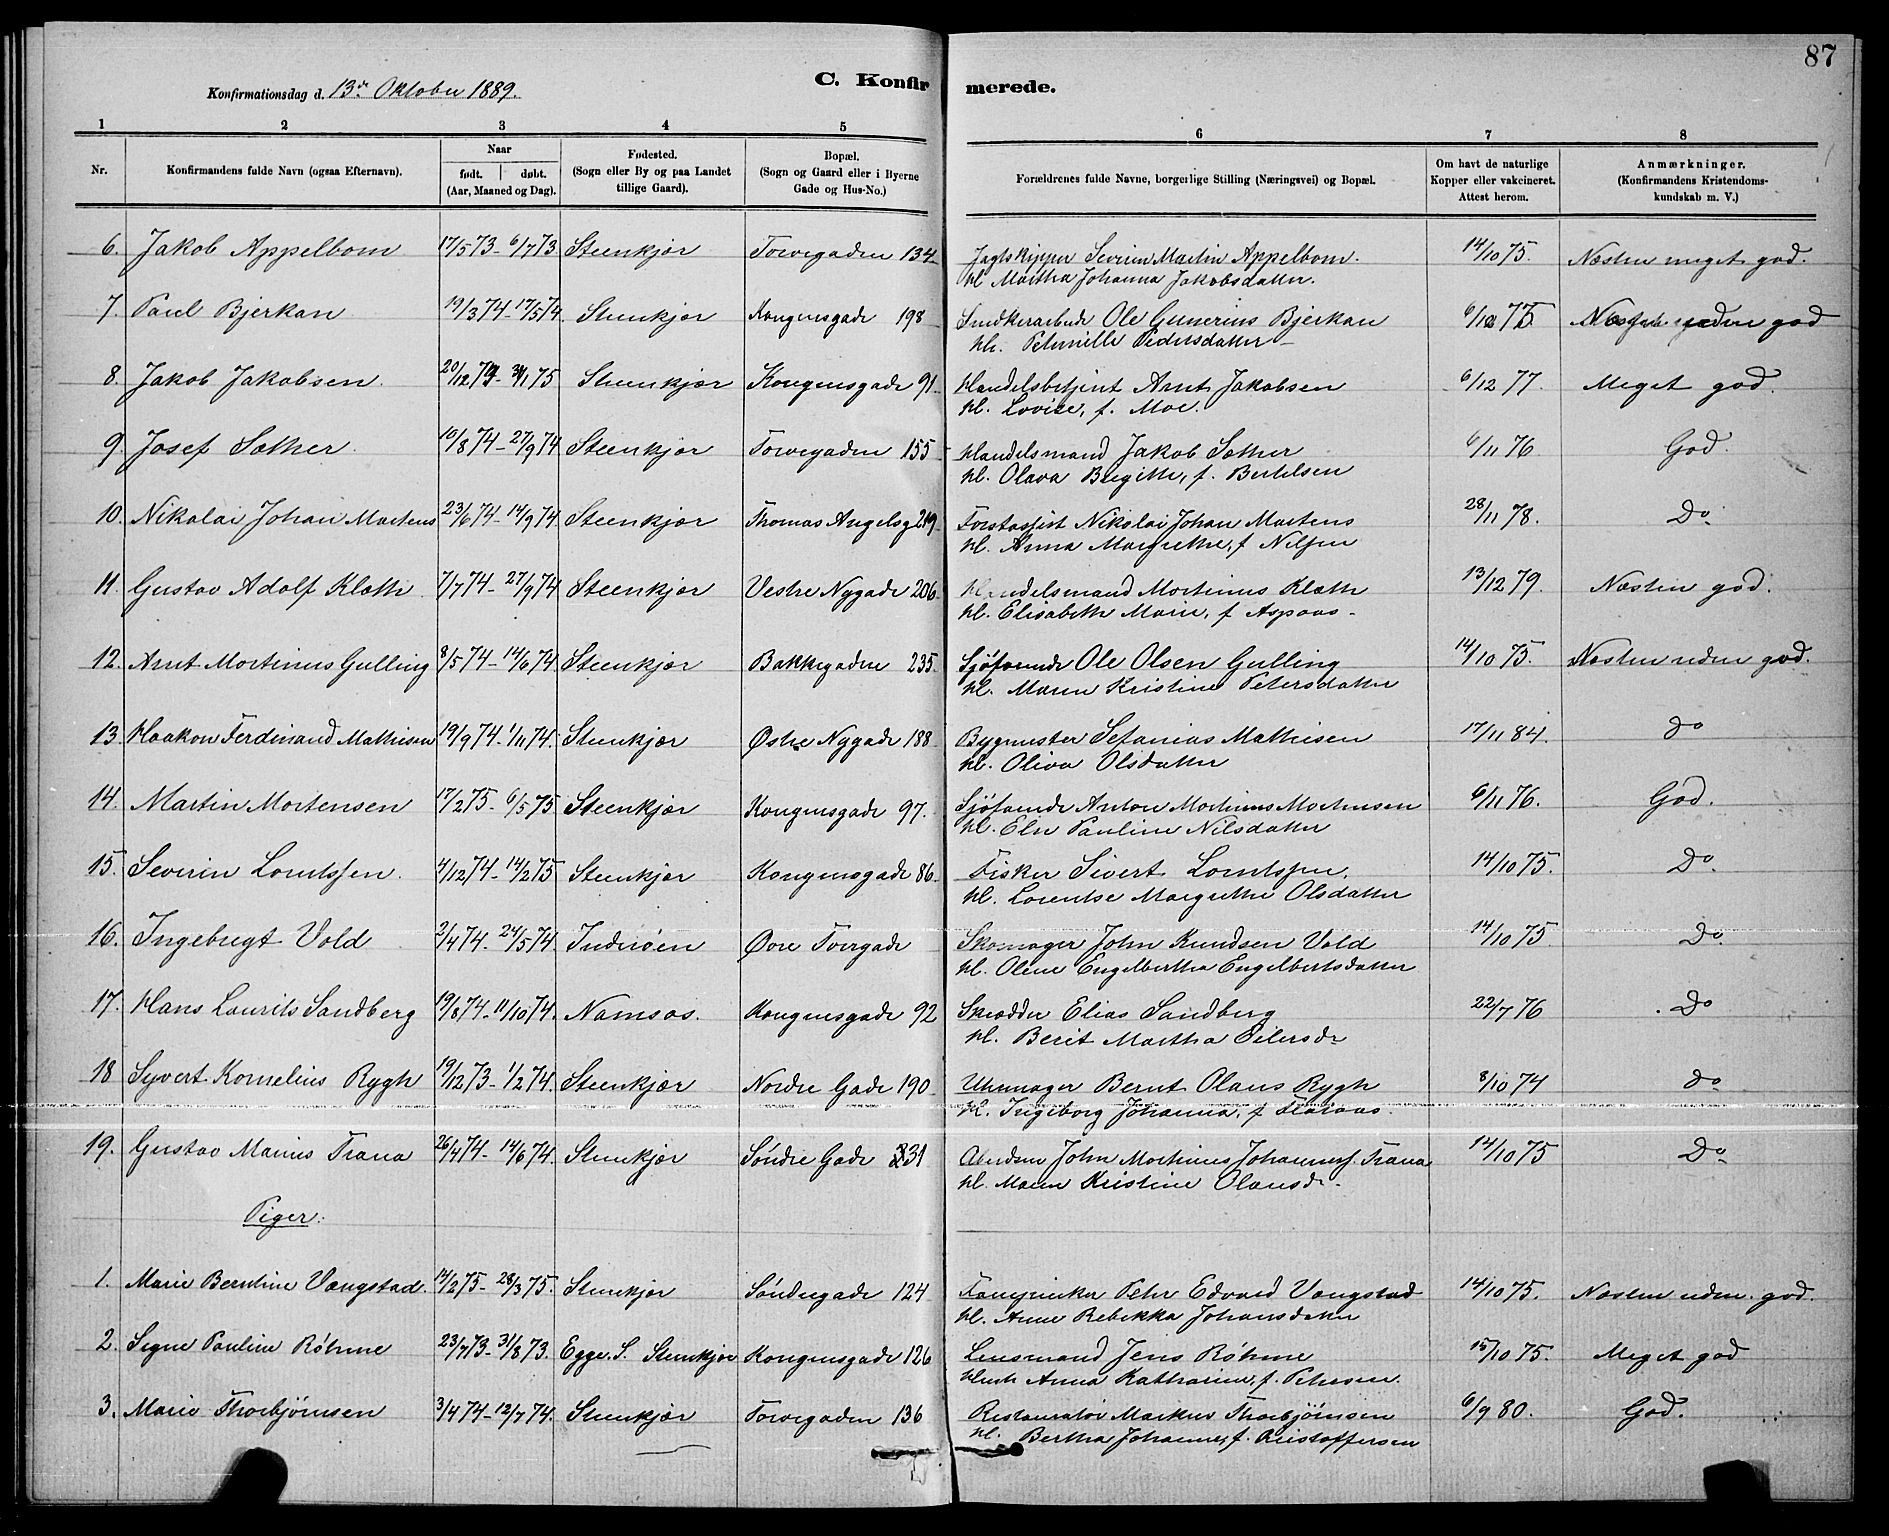 87
Konfirmationsdag d. 13de Oktober 1889.
C. Konfir
merede.
1 2 3 4 5 6 7 8
Nr.
Konfirmandens fulde Navn (ogsaa Efternavn).
Naar
født. døbt.
(Aar, Maaned og Dag).
Fødested.
(Sogn eller By og paa Landet
tillige Gaard).
Bopæl.
(Sogn og Gaard eller i Byerne
Gade og Hus-No.)
Forældrenes fulde Navne, borgerlige Stilling (Næringsvei) og Bopæl.
Om havt de naturlige
Kopper eller vakcineret.
Attest herom.
Anmærkninger.
(Konfirmandens Kristendoms-
kundskab m. V.)
6. Jakob Appelbom 17/5 73 - 6/7 73 Steenkjær Torvegaden 134 Jagtskipper Severin Martin Appelbom. 14/10 75. Næsten meget god.
Hl. Martha Johanna Jakobsdatter.
7. Paul Bjerkan 19/3 74 - 17/5 74. Steenkjær Kongensgade 198 Snedkerarbeide Ole Gunerius Bjerkan 6/12 75. god
Hl. Peternille Pedersdatter
8. Jakob Jakobsen. 20/12 74 - 31/1 75 Steenkjær Kongensgade 91 Handelsbetjent Arnt Jakobsen 6/12 77. Meget god.
Hl. Lovise, f. Moe.
9. Josef Sæther. 10/8 74 - 27/9 74 Steenkjær Torvegaden 155 Handelsmand Jakob Sæther 6/11 76 God.
Hl. Olava Birgitte, f. Bertelsen
10. Nikolai Johan Martens 23/6 74 - 14/9 74 Steenkjær Thomas Angelsg 219 Forstassist Nikolai Johan Martens 28/11 78. Do
Hl. Anna Margrethe, f. Nilsen
11. Gustav Adolf Klæth 7/7 74 - 27/9 74 Steenkjær Vestre Nygade 206. Handelsmand Martinus Klæth 13/12 79. Næsten god.
Hl. Elisabeth Marie, f. Aspaas
12. Arnt Martinus Gulling 8/5 74 - 14/6 74 Steenkjær Bakkegaden 235. Sjøfarende Ole Olsen Gulling 14/10 75. Næsten uden god.
Hl. Maren Kristine Petersdatter
13. Haakon Ferdinand Mathisen 19/9 74 - 1/11 74. Steenkjær Østre Nygade 188 Bygmester Sefanias Mathisen 17/11 84. do
Hl. Oliva Olsdatter
14. Martin Mortensen 17/2 75 - 6/5 75 Steenkjær Kongensgade 97. Sjøfarende Anton Martinus Mortensen 6/11 76. God.
Hl. Elen Pauline Nilsdatter
15. Severin Lorntssen. 4/12 74 - 14/2 75 Steenkjær Kongensgade 86. Fisker Sivert Lorntssen. 14/10 75. Do
Hl. Lorentse Margrethe Olsdatter
16. Ingebregt Vold 2/4 74 - 24/5 74. Inderøen Øvre Torvgade Skomager John Knudsen Vold 14/10 75. Do
Hl. Olene Engelbertha Engelbertsdatter
17. Hans Laurits Sandberg 19/8 74 - 11/10 74. Namsos. Kongensgade 92 Skrædder Elias Sandberg 22/7 76 Do
Hl. Berit Martha Eilersdr
18 Syvert Kornelius Rygh 19/12 73 - 1/2 74. Steenkjær Nordre Gade 190 Uhrmager Bernt Olaus Rygh 8/10 74 do
Hl. Ingeborg Johanna, f.
19. Gustav Marius Trana 26/4 74 - 14/6 74. Steenkjær Søndre Gade 231 John Martinus Johanness. Trana 14/10 75 Do
Hl. Maren Kristine Olausdr.
Piger:
1. Marie Berntine Vangstad. 14/2 75 - 28/3 75. Steenkjær Søndregade 124 Peter Edvard Vangstad 14/10 75. Næsten uden god.
Hl. Anne Rebekka Johansdatter
2. Signe Pauline Røhme 23/7 73 - 31/8 73. Egge S. Steenkjær Kongensgade 126 Lensmand Jens Røhme 15/10 75. Meget god
Hust Anna Katharina, f. Petersen.
3. Marie Thorbjørnsen 3/4 74 - 12/7 74. Steenkjær Torvegaden 136 Restauratør Markus Thorbjørnsen 6/9 80. God.
Hl. Bertha Johanne, f. Kristoffersen